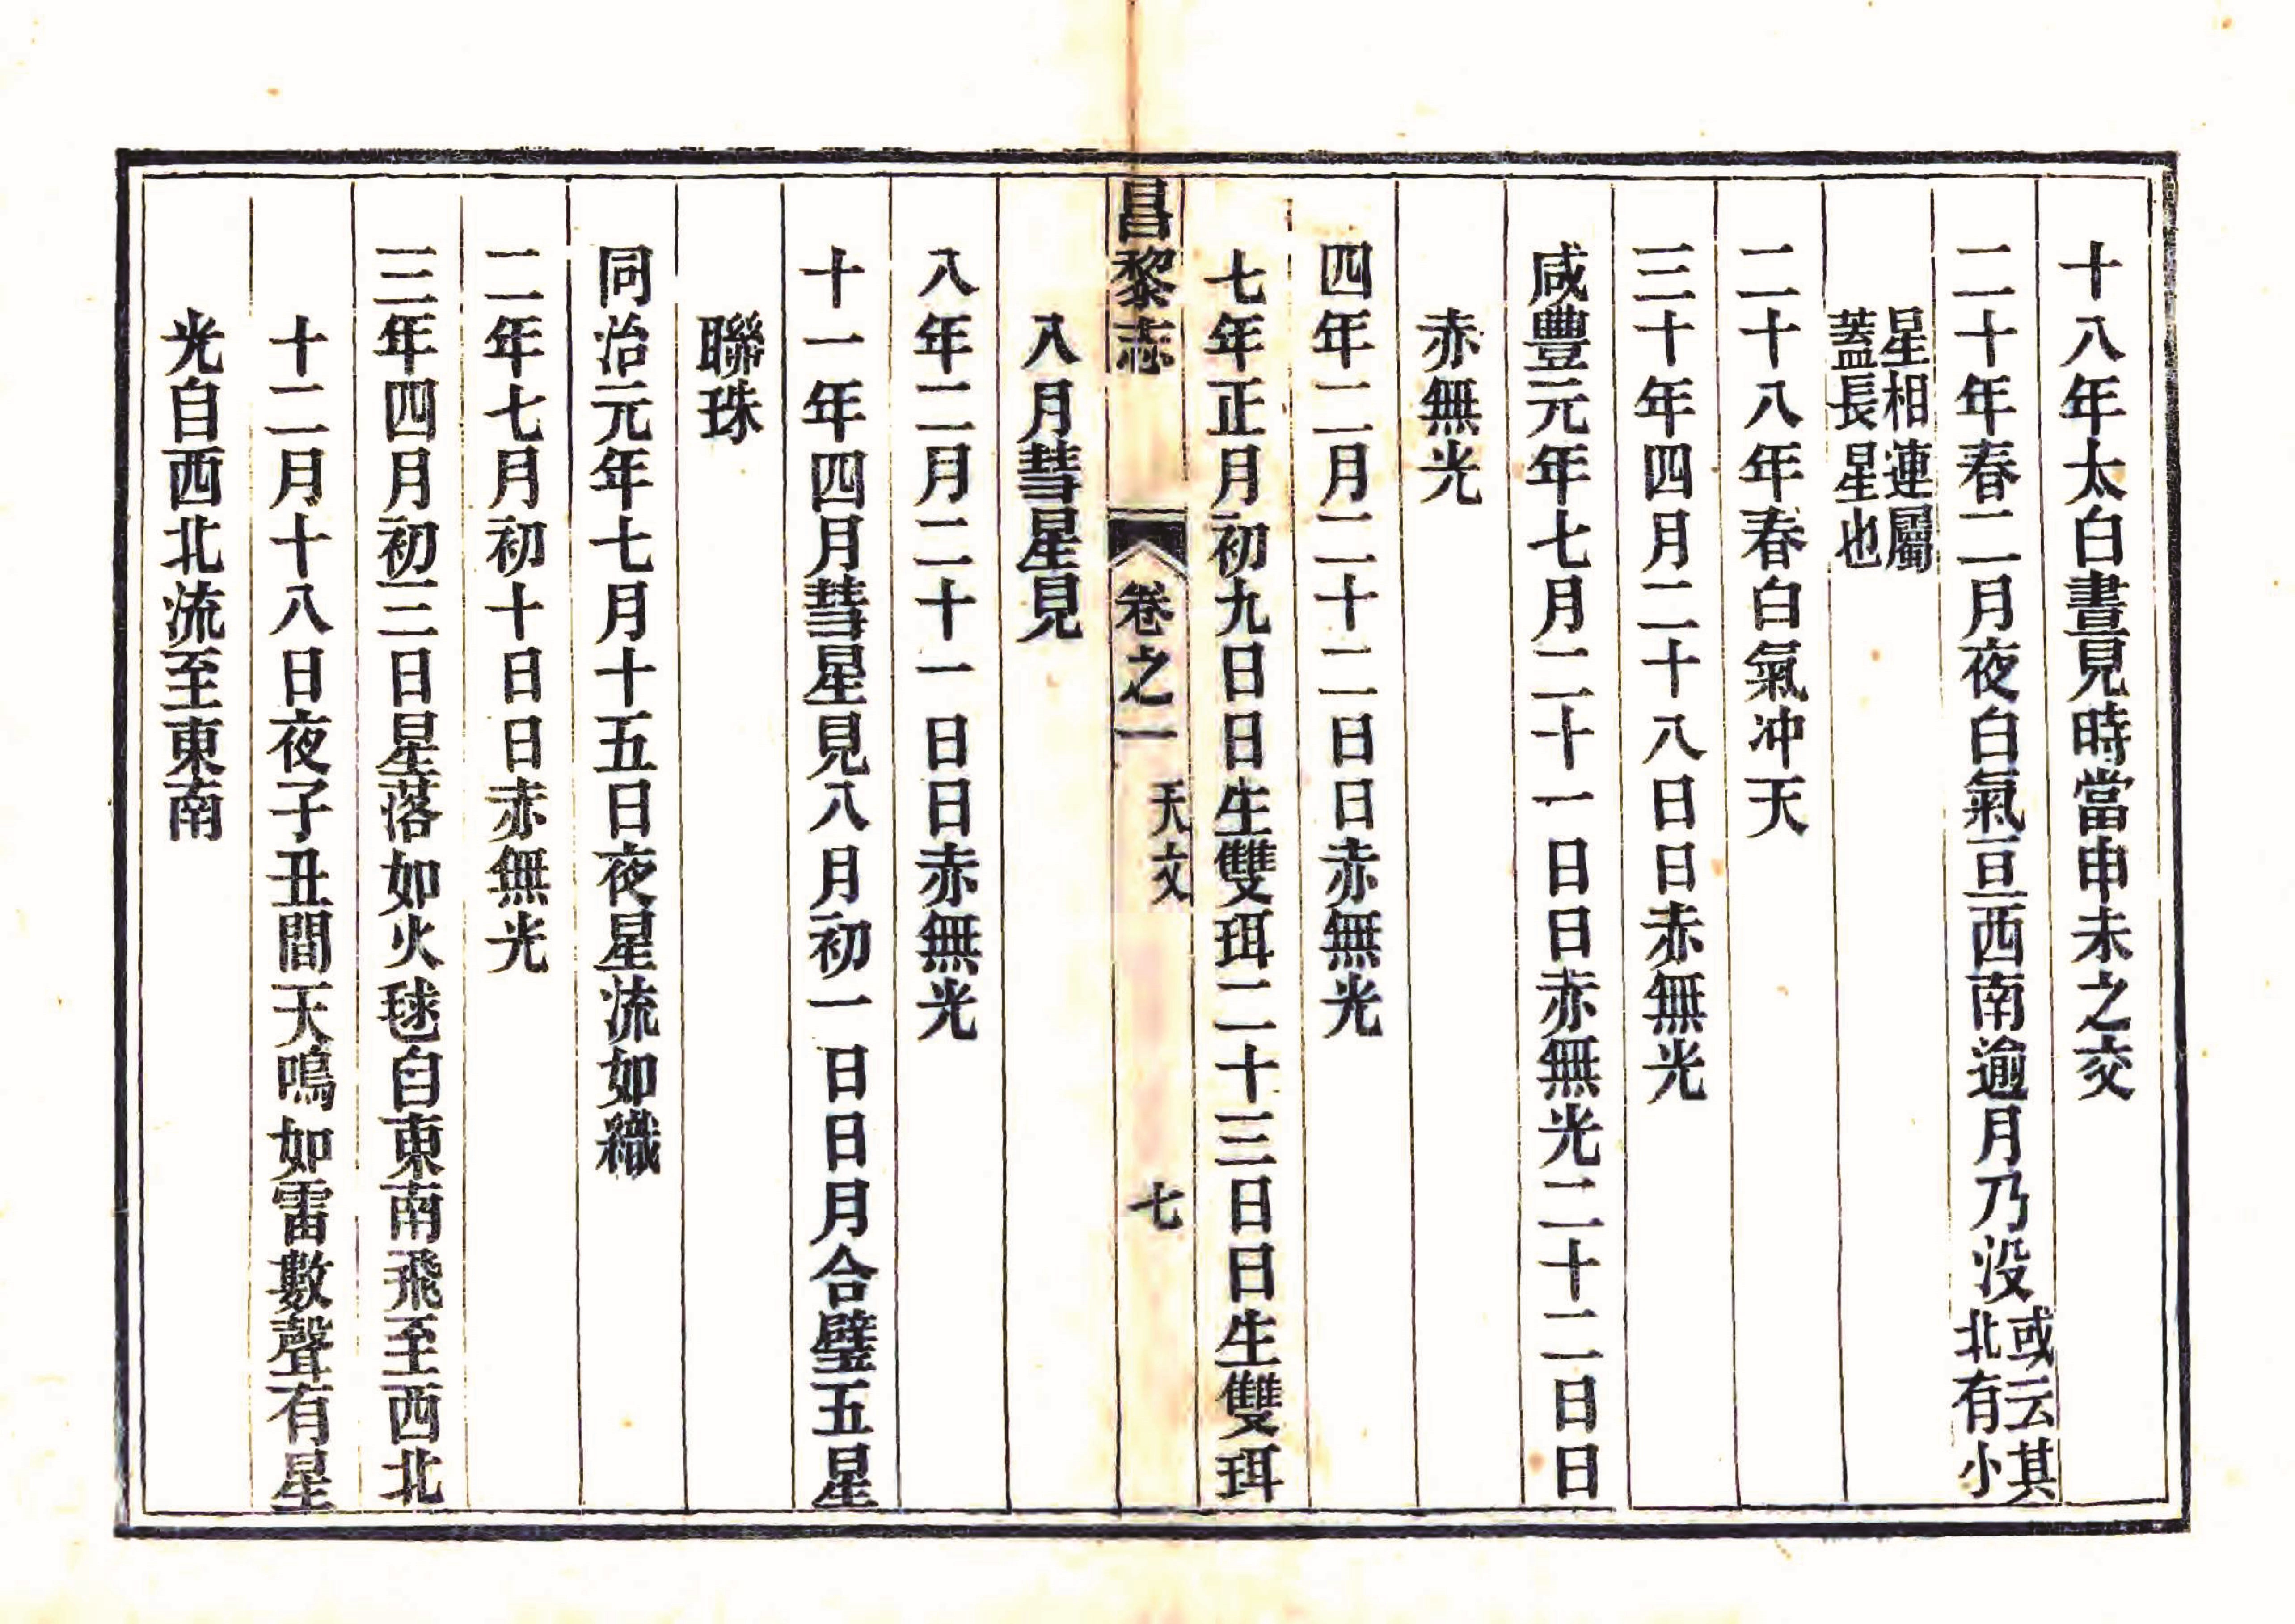 十八年太白晝見時當申未之交
二十年春二月夜白氣亘西南逾月乃没或云其北有小
星相連屬蓋長星也
二十八年春白氣冲天
三十年四月二十八日日赤無光
咸豐元年七月二十一日日赤無光二十二日日
赤無光
四年二月二十二日日赤無光
七年正月初九日日生雙珥二十三日日生雙珥
昌黎志 卷之一 天文 七
八月彗星見
八年二月二十一日日赤無光
十一年四月彗星見八月初一日日月合璧五星
聯珠
同治元年七月十五日夜星流如織
二年七月初十日日赤無光
三年四月初三日星落如火毬自東南飛至西北
十二月十八日夜子丑間天鳴如雷數聲有星
光自西北流至東南